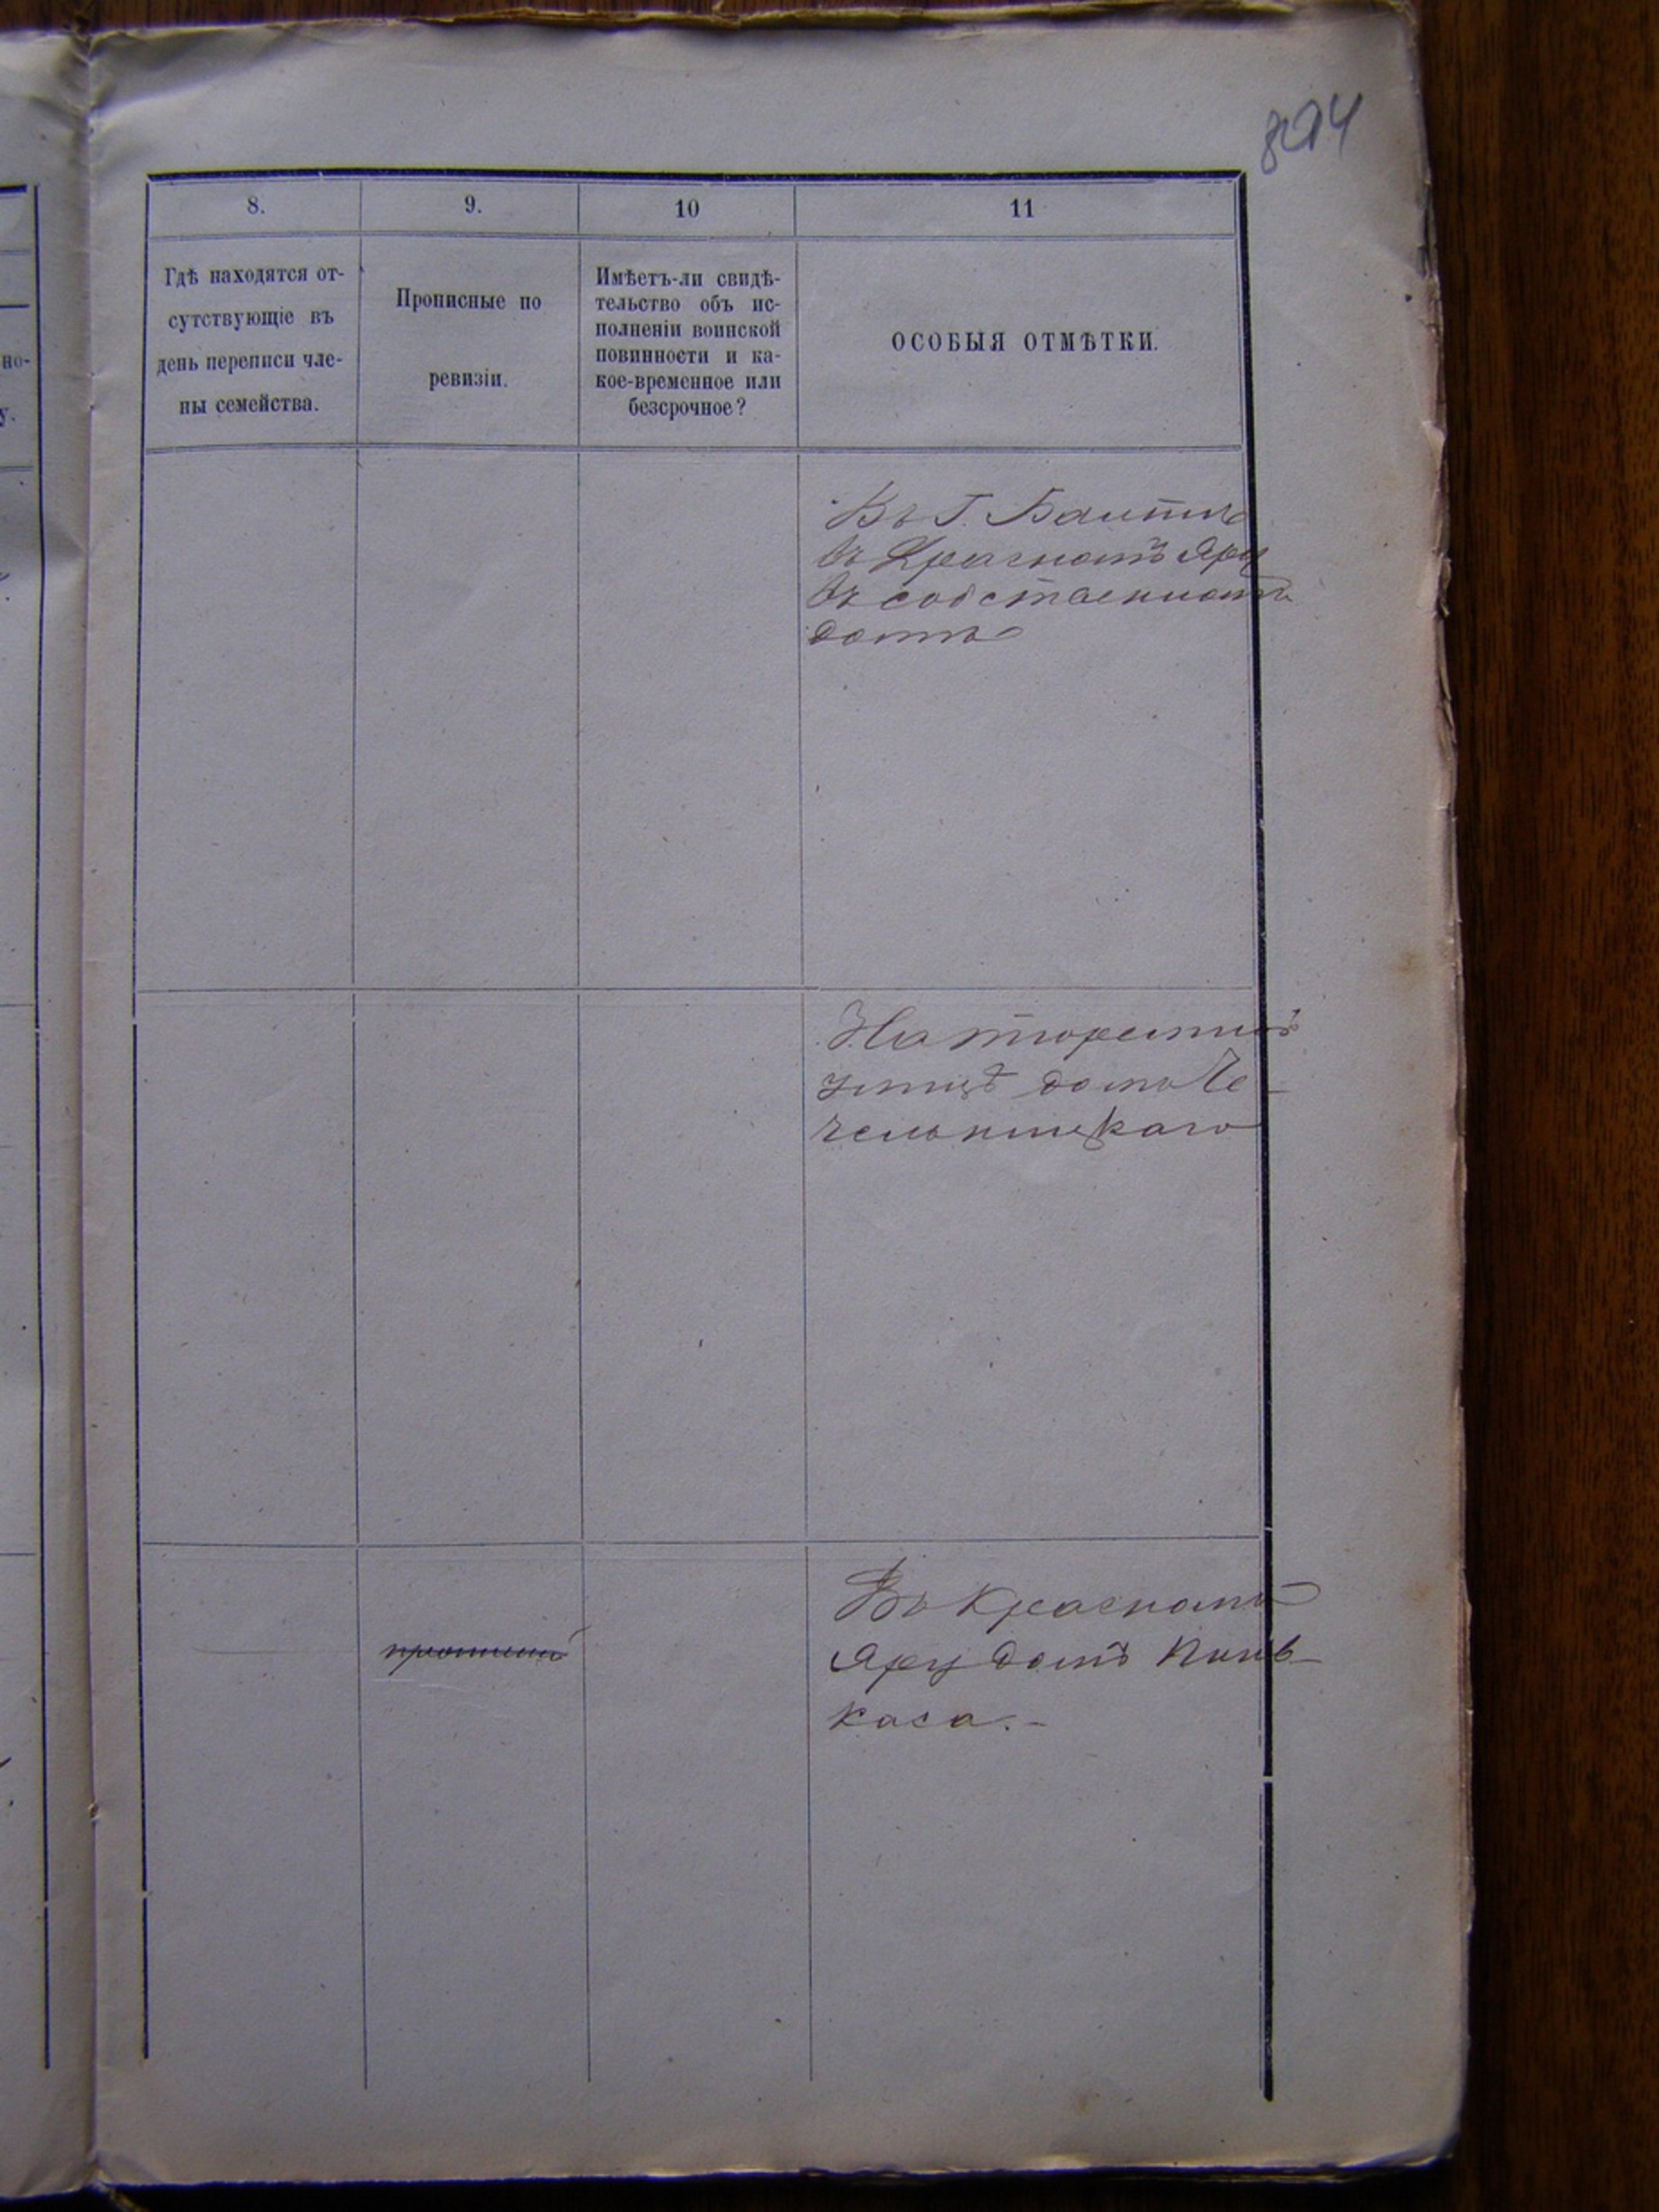 894
8.
9.
10
11
Гдѣ находятся от-
сутствующіе въ
день переписи чле-
ны семейства.
Прописные по
ревизіи.
Имѣетъ-ли свидѣ-
тельство объ ис-
полненіи воинской
повинности и ка-
кое-временное или
безсрочное?
ОСОБЫЯ ОТМѢТКИ.
но-
у.
Въ Г. Балтѣ
въ Красномъ Яру
въ собственномъ
домѣ
На тюремной
улицѣ домъ Че-
чельницкаго
Въ Красномъ
Яру домъ Пинь-
каса.-